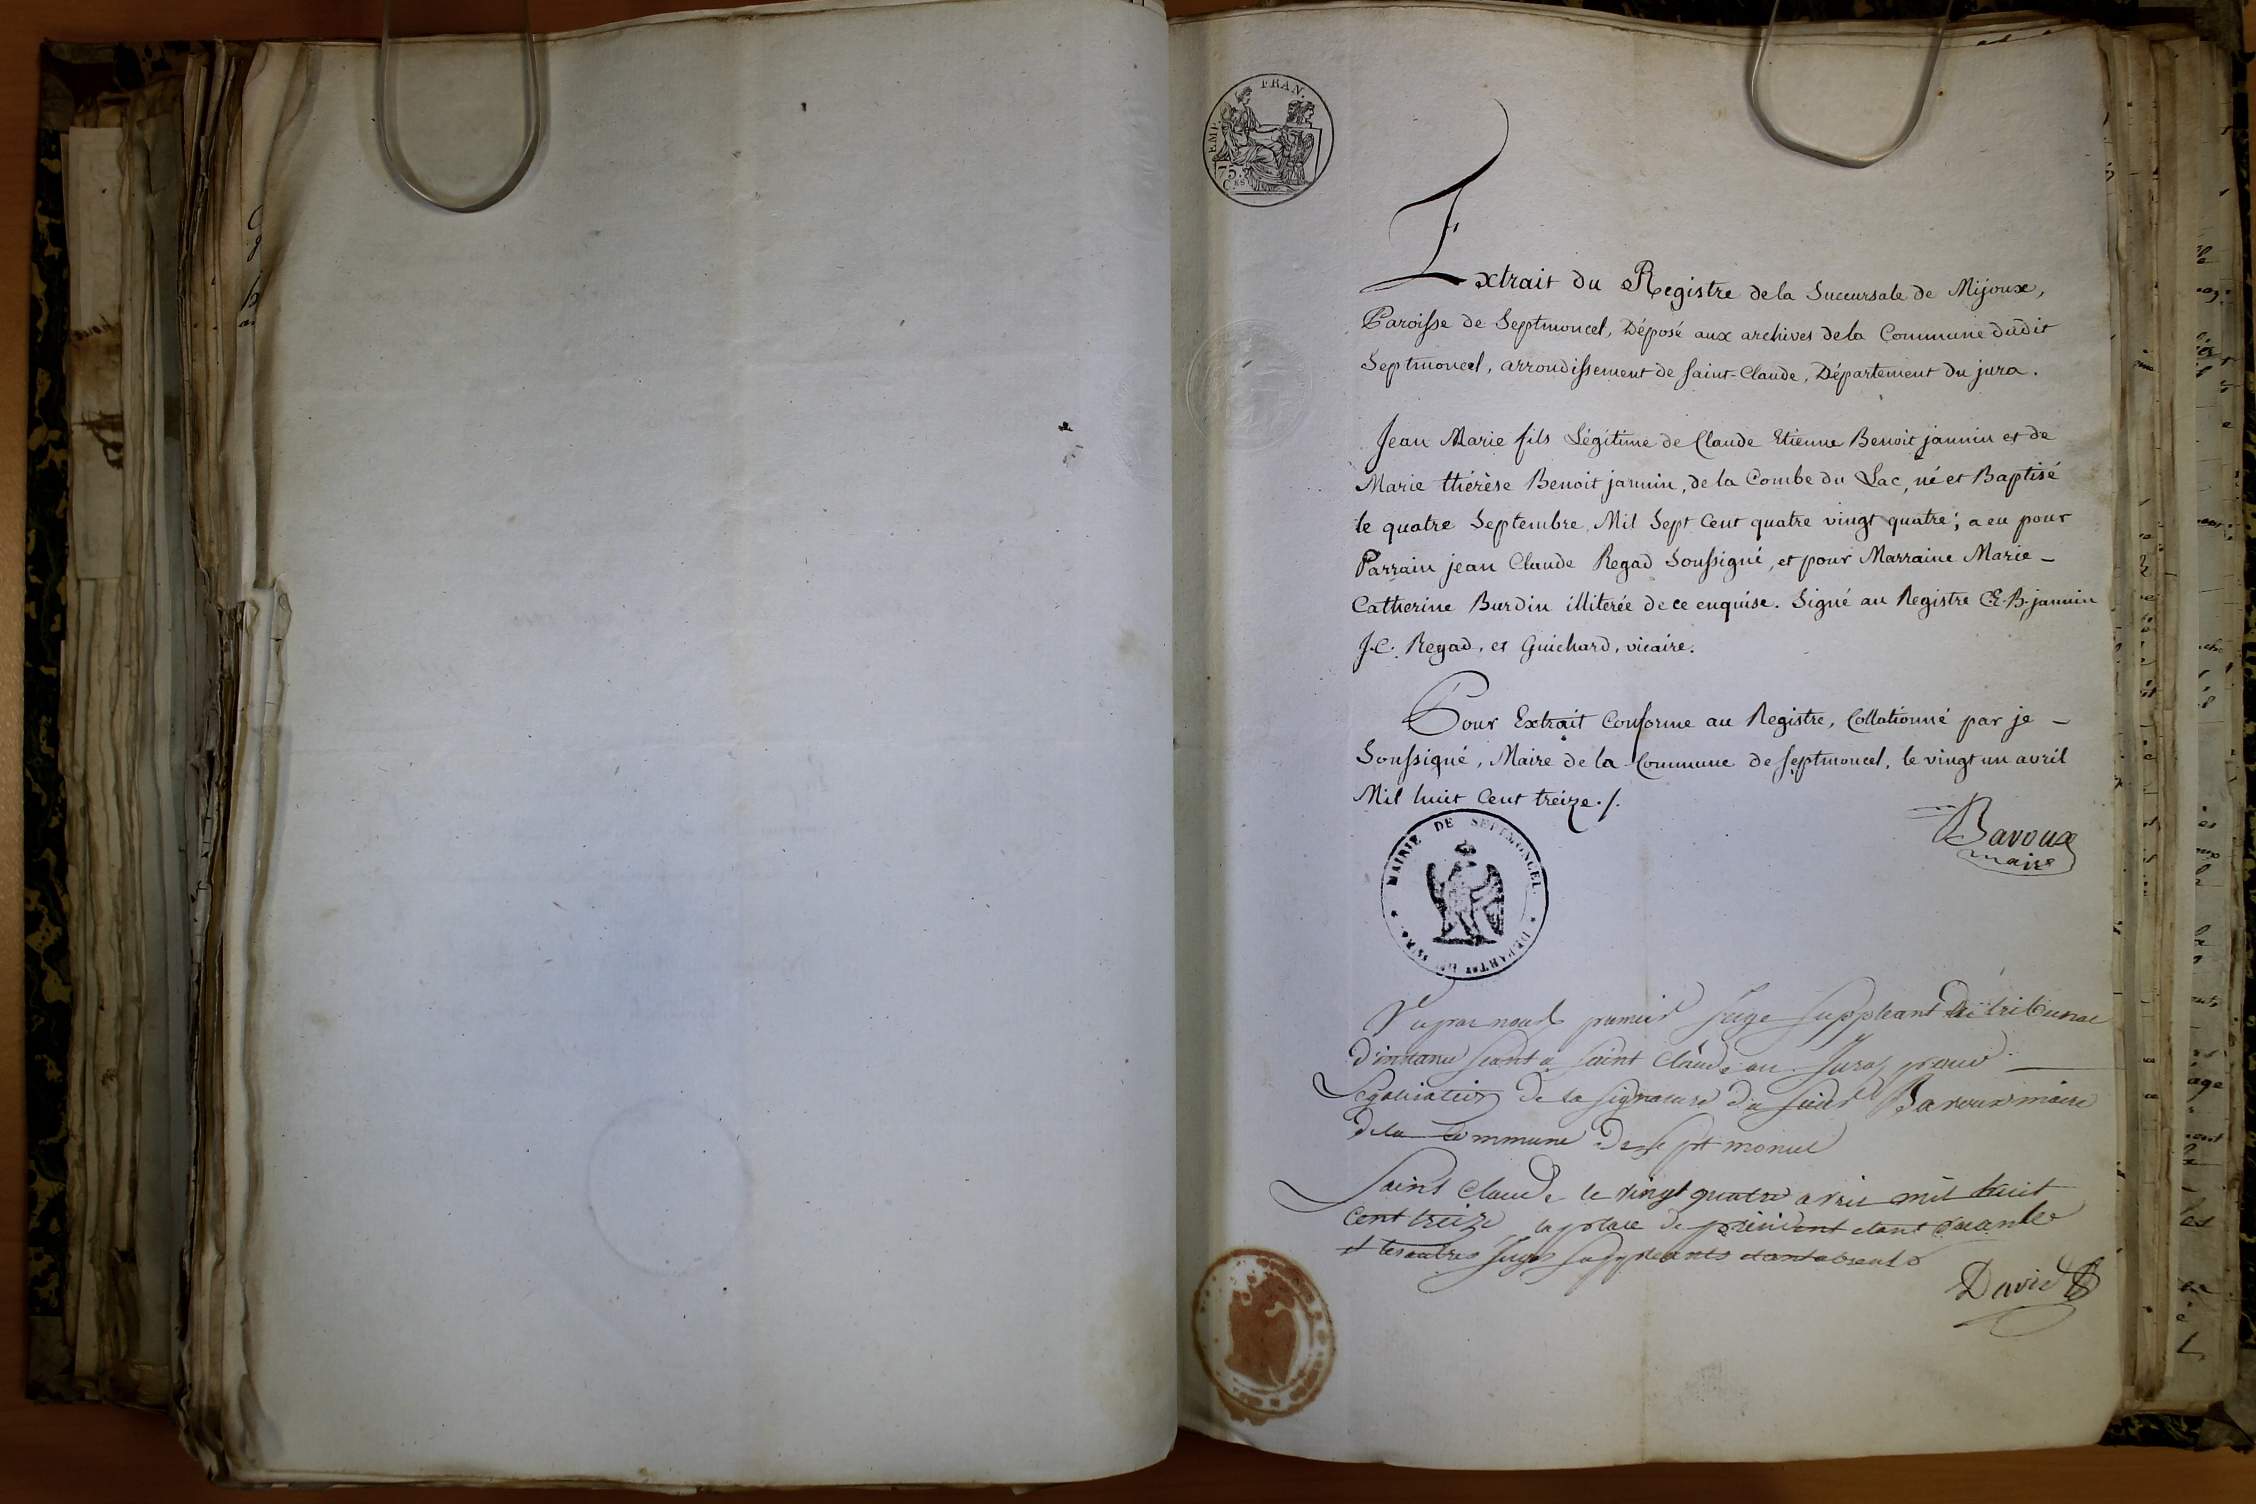 EMP. FRAN.
75.
C.ES
Extrait du Registre de la Succursale de Mijoux,
Paroisse de Septmoncel, Déposé aux archives de la Commune dudit
Septmoncel, arrondissement de saint-Claude, Département du jura.
Jean Marie fils Légitime de Claude Etienne Benoit jannin et de
Marie thérèse Benoit jannin, de la Combe du Lac, né et Baptisé
le quatre Septembre, Mil Sept Cent quatre vingt quatre; a eu pour
Parrain jean Claude Regad Soussigné, et pour Marraine Marie-
Catherine Burdin illiterée de ce enquise. Signé au Registre C.E.B. jannin
J.C. Regad, et Guichard, vicaire.
Pour Extrait Conforme au Registre, Collationné par je -
Soussigné, Maire de la Commune de septmoncel, le vingt un avril
Mil huit Cent treize./.
Bavoux
maire
MAIRIE DE SEPTMONCEL. * DÉPARTnt DU JURA. *
Vu par nous premier juge suppleant du tribunal
d'instance séant à saint Claude au Jura, pour
Legalisation de la signature du sieur Bavoux maire
de la Commune de Septmoncel
Saint Claude le vingt quatre avril mil huit
Cent treize, la place de président étant vacante
et les autres juges suppleants etant absents
David